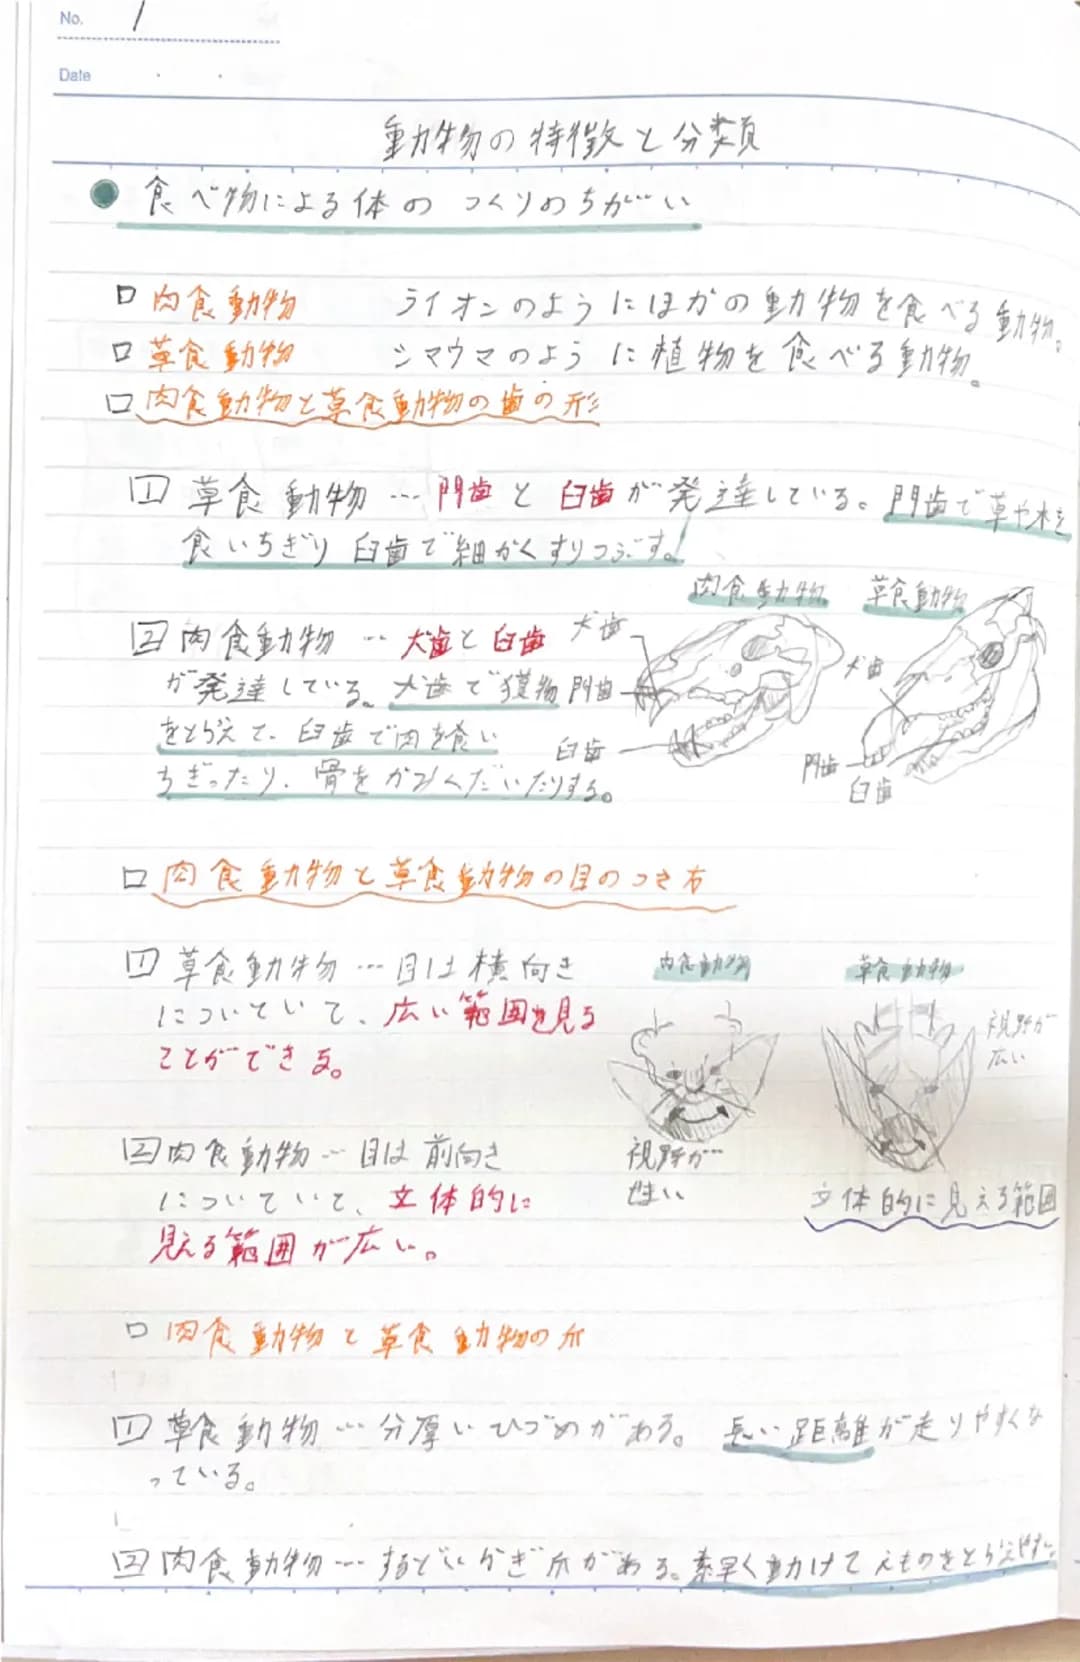 No. 1
Date
動物の特徴と分類
食べ物による体のつくりのちがい
肉食動物 ライオンのようにほかの動物を食べる動物。
草食動物 シマウマのように植物を食べる動物。
肉食動物と草食動物の歯の形
1 草食動物…門歯と臼歯が発達している。門歯で草や木を
食いちぎり臼歯で細かくすりつぶす。
肉食動物 草食動物
2 肉食動物…犬歯と臼歯
が発達している。犬歯で獲物
をとらえて、臼歯で肉を食い
ちぎったり、骨をかみくだいたりする。
犬歯
門歯
臼歯
犬歯
門歯
臼歯
肉食動物と草食動物の目のつき方
1 草食動物…目は横向き
についていて、広い範囲を見る
ことができる。
肉食動物 草食動物
視野が
広い
2 肉食動物…目は前向き
についていて、立体的に
見える範囲が広い。
視野が
立体的に見える範囲
肉食動物と草食動物の爪
1 草食動物…分厚いひづめがある。長い距離が走りやすくな
っている。
2 肉食動物…するどいかぎ爪がある。素早く動けてえものをとらえやすい。